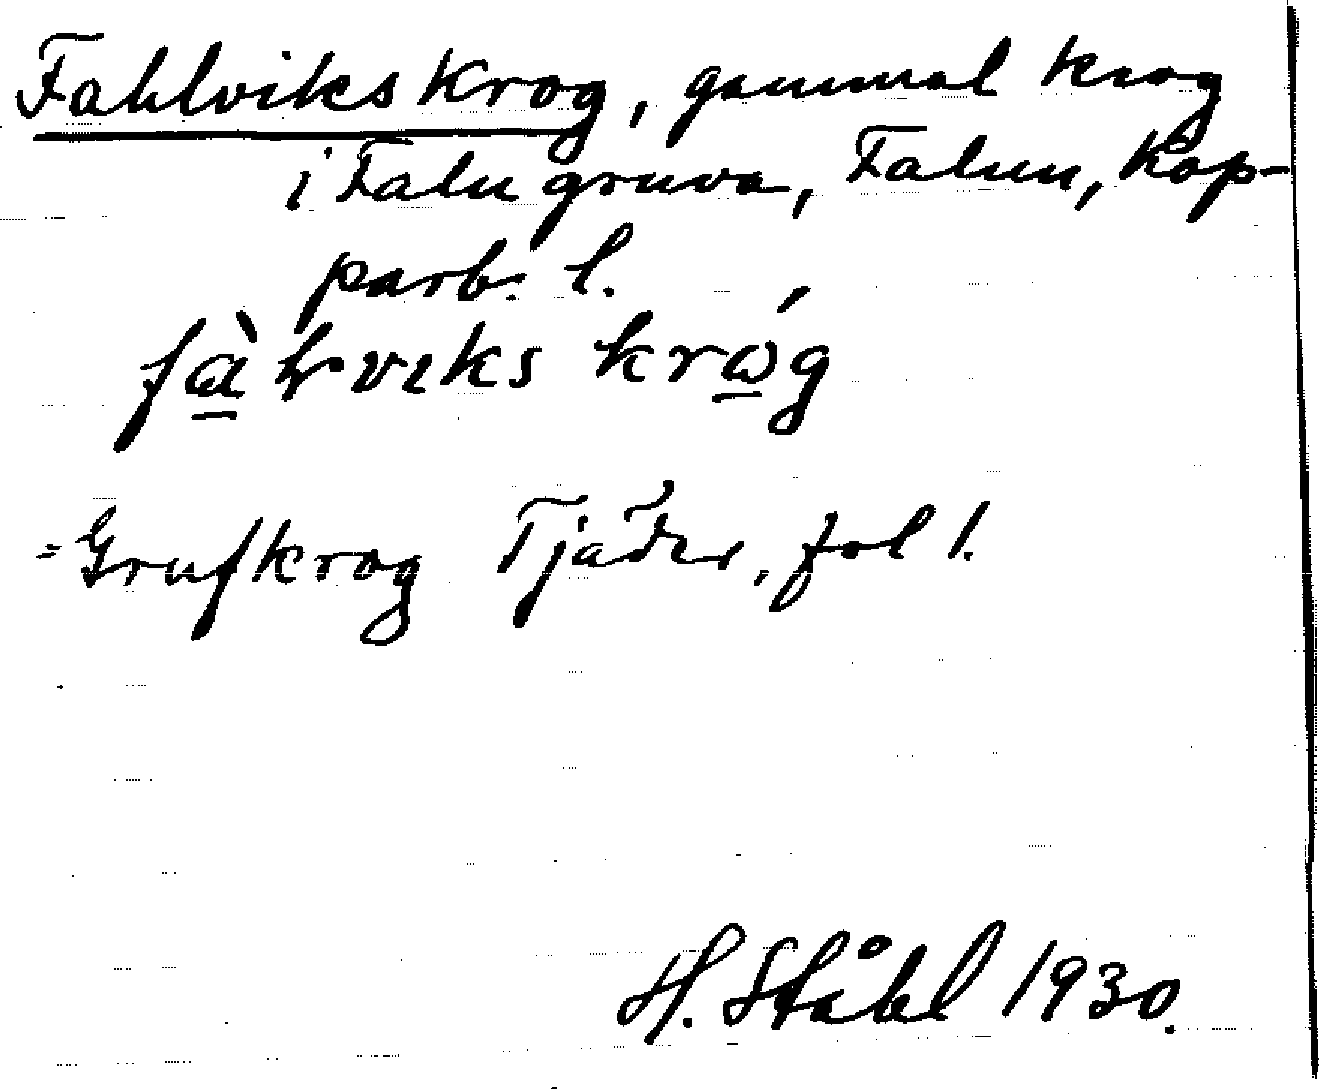 Fahlviks Krog, gammal krog
i Falu gruva, Falun, Kop-
parb. l.
= Grufkrog Tjäder, fol 1.
H. Ståhl 1930.